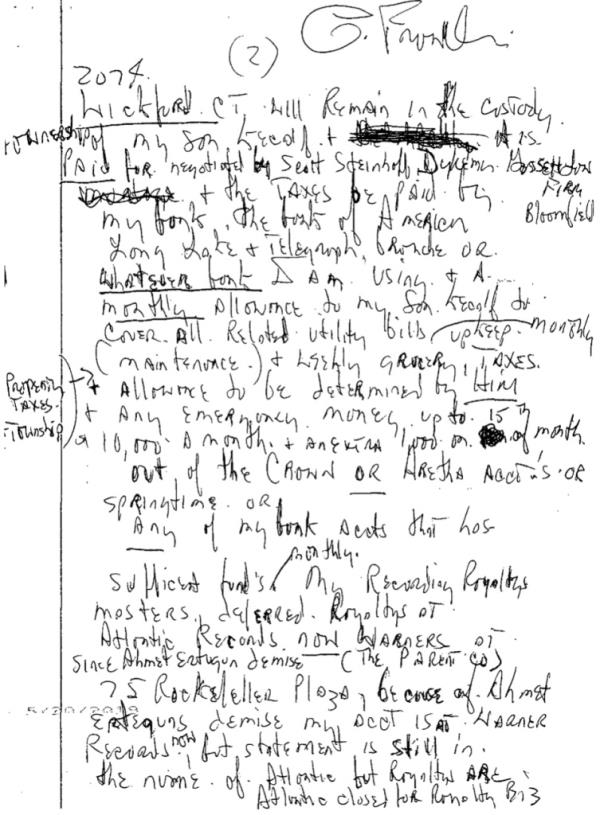 (2)
2074.
Wickford CT will Remain in the custody
ownership of my Son Kecalf + is
Paid for negotiated by Scott Steinhoff, Dykema Gossett Law
Firm
Bloomfield
+ the TAXES be PAID by
my bank, the bank of America
Long Lake + Telegraph, Branche OR
whatever bank I Am USING + A
monthly allowance to my Son Kecalf to
COVER All Related utility bills upkeep monthly
(maintenance) + weekly grocery, TAXES.
Property
TAXES
Township
+ Allowance to be determined by Him
+ Any Emergency money up to 15th
10,000 A month + an extra 1,000 on of month
out of the CROWN OR ARETHA ACCT'S OR
SPRINGTIME OR
Any of my bank Accts that has
monthly.
sufficient fund's My Recording Royaltys
masters, deferred Royaltys at
Atlantic Records now WARNERS at
since Ahmet Ertugun demise (THE PARENT CO)
75 Rockefeller Plaza, because of Ahmet
5/20/2019
Erteguns demise my Acct IS at WARNER
Records now, but statement is still in
the name of Atlantic but Royaltys ARE
Atlantic closed for Royalty Biz